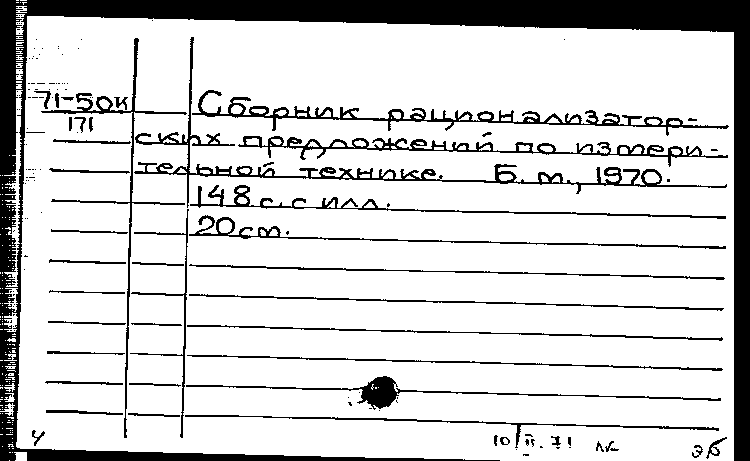 71-50к Сборник рационализатор-
171
ских предложений по измери-
тельной технике. Б. м., 1970.
148 с. с илл.
20 см.
ч 10/II.71 эб